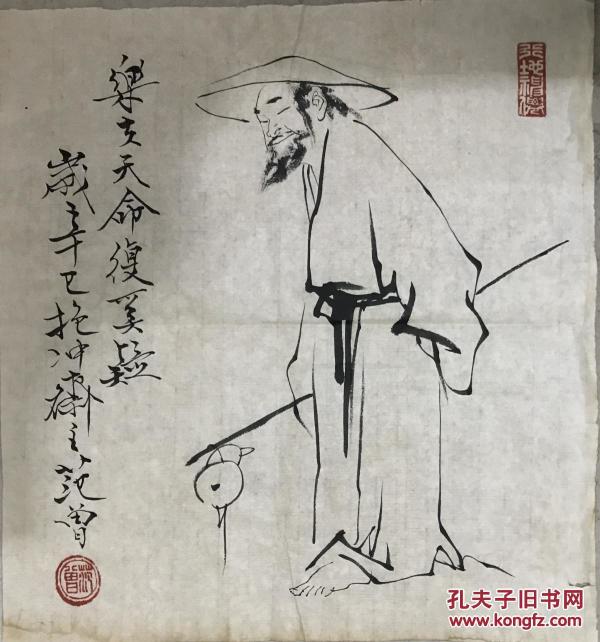 樂夫天命復奚疑
歲辛巳抱冲齋主范曾
范曾
孔夫子旧书网
www.kongfz.com